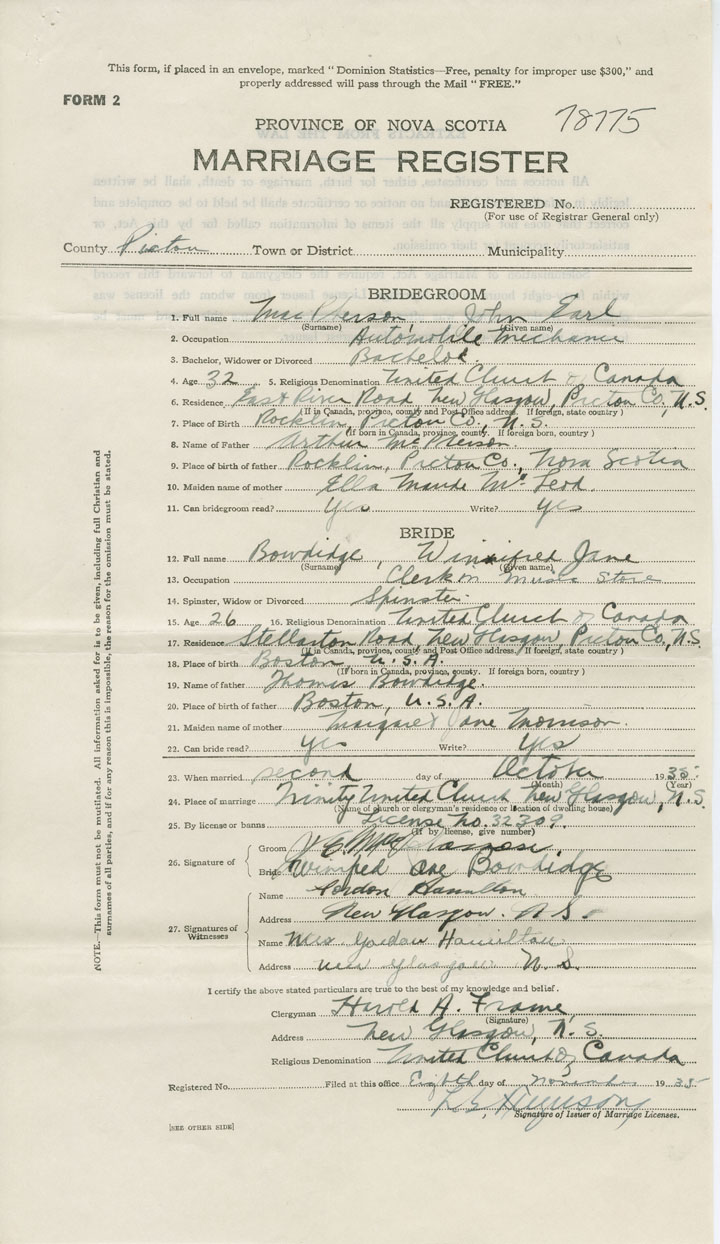 This form, if placed in an envelope, marked "Dominion Statistics—Free, penalty for improper use $300," and
properly addressed will pass through the Mail "FREE."
FORM 2
78775
PROVINCE OF NOVA SCOTIA
MARRIAGE REGISTER
REGISTERED No.
(For use of Registrar General only)
County Pictou Town or District Municipality
BRIDEGROOM
1. Full name MacPherson John Earl
(Surname) (Given name)
2. Occupation Automobile Mechanic
3. Bachelor, Widower or Divorced Bachelor
4. Age 32 5. Religious Denomination United Church of Canada
6. Residence East River Road, New Glasgow, Pictou Co., N.S.
(If in Canada, province, county and Post Office address. If foreign, state country)
7. Place of Birth Rocklin, Pictou Co., N.S.
(If born in Canada, province, county. If foreign born, country)
8. Name of Father Arthur McPherson
9. Place of birth of father Rocklin, Pictou Co., Nova Scotia
10. Maiden name of mother Ella Maude McLeod
11. Can bridegroom read? Yes Write? Yes
BRIDE
12. Full name Bowdidge, Winnifred Jane
(Surname) (Given name)
13. Occupation Clerk in Music Store
14. Spinster, Widow or Divorced Spinster
15. Age 26 16. Religious Denomination United Church of Canada
17. Residence Stellarton Road, New Glasgow, Pictou Co., N.S.
(If in Canada, province, county and Post Office address. If foreign, state country)
18. Place of birth Boston, U.S.A.
(If born in Canada, province, county. If foreign born, country)
19. Name of father Thomas Bowdidge.
20. Place of birth of father Boston, U.S.A.
21. Maiden name of mother Margaret Jane Morrison.
22. Can bride read? Yes Write? Yes
23. When married second day of October 1935
(Month) (Year)
24. Place of marriage Trinity United Church New Glasgow, N.S.
(Name of church or clergyman's residence or location of dwelling house)
25. By license or banns License No. 32309.
(If by license, give number)
26. Signature of
Groom
Bride Winifred Jane Bowdidge
27. Signatures of Witnesses
Name Gordon Hamilton
Address New Glasgow. N.S.
Name Mrs. Gordon Hamilton
Address New Glasgow N.S.
I certify the above stated particulars are true to the best of my knowledge and belief.
Clergyman Harold A. Frame
(Signature)
Address New Glasgow, N.S.
Religious Denomination United Church of Canada
Registered No. Filed at this office Eighth day of November 1935
Signature of Issuer of Marriage Licenses.
[SEE OTHER SIDE]
NOTE.—This form must not be mutilated. All information asked for is to be given, including full Christian and
surnames of all parties, and if for any reason this is impossible, the reason for the omission must be stated.